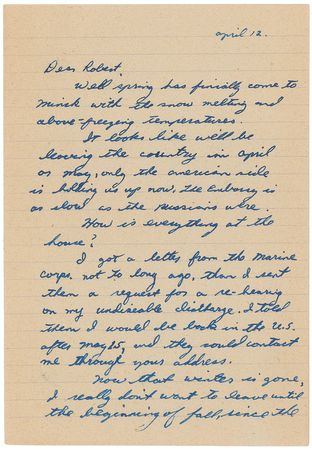 april 12.
Dear Robert,
Well spring has finially come to
Minsk with the snow melting and
above-freezing temperatures.
It looks like we'll be
leaving the country in april
or may, only the american side
is holding us up now. The Embassy is
as slow as the Russians were.
How is everything at the
house?
I got a letter from the Marine
corps. not to long ago, than I sent
them a request for a re-hearing
on my undiseable discharge. I told
them I would be back in the U.S.
after May 15, and they sould contact
me through your address.
Now that winter is gone,
I really don't want to leave until
the beginning of fall, since the